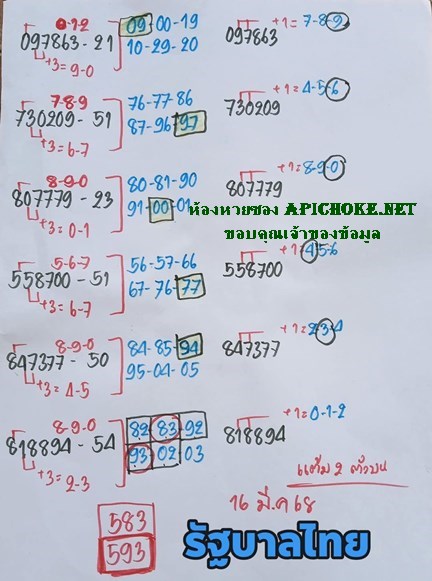 0-1-2
097863 - 21
+3 = 9-0
09 - 00 - 19
10 - 29 - 20
+1 = 7-8-9
097863
7-8-9
730209 - 51
+3 = 6-7
76-77-86
87-96-97
+1 = 4-5-6
730209
8-9-0
807779 - 23
+3 = 0-1
80-81-90
91-00-01
+1 = 8-9-0
807779
ห้องหวยซอง APICHOKE.NET
ขอบคุณเจ้าของข้อมูล
5-6-7
558700 - 51
+3 = 6-7
56-57-66
67-76-77
+1 = 4-5-6
558700
8-9-0
847377 - 50
+3 = 4-5
84-85-94
95-04-05
+1 = 2-3-4
847377
8-9-0
818894 - 54
+3 = 2-3
82 83-92
93 02 03
+1 = 0-1-2
818894
แต้ม 2 ตัวบน
16 มี.ค 68
583
593
รัฐบาลไทย